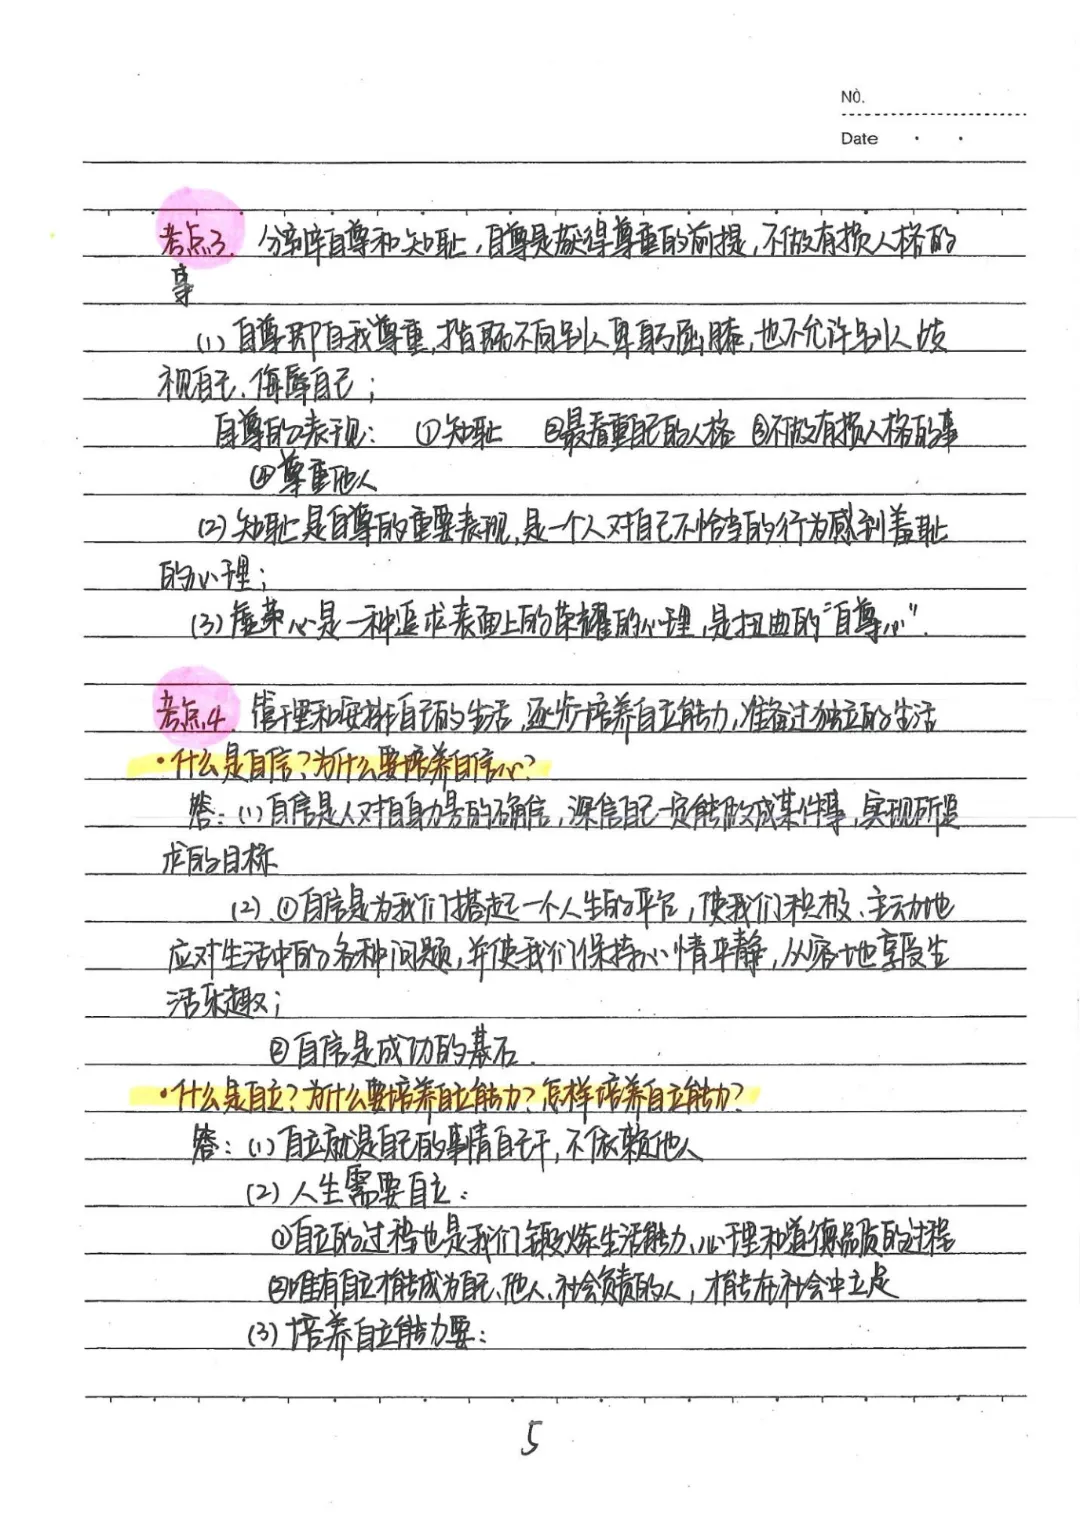 NO.
Date
考点3. 分辨自尊和知耻,自尊是获得尊重的前提,不做有损人格的
事
(1) 自尊即自我尊重,指既不向别人卑躬屈膝,也不允许别人歧
视自己、侮辱自己;
自尊的表现: ①知耻 ②最看重自己的人格 ③不做有损人格的事
④尊重他人
(2) 知耻是自尊的重要表现,是一个人对自己不恰当的行为感到羞耻
的心理;
(3) 虚荣心是一种追求表面上的荣耀的心理,是扭曲的“自尊心”.
考点4. 管理和安排自己的生活,逐步培养自立能力,准备过独立的生活
·什么是自信?为什么要培养自信心?
答: (1) 自信是人对自身力量的确信,深信自己一定能做成某件事,实现所追
求的目标
(2).①自信是为我们搭起一个人生的平台,使我们积极、主动地
应对生活中的各种问题,并使我们保持心情平静,从容地享受生
活乐趣;
②自信是成功的基石.
·什么是自立?为什么要培养自立能力?怎样培养自立能力?
答: (1) 自立就是自己的事情自己干,不依赖他人
(2) 人生需要自立:
①自立的过程也是我们锻炼生活能力、心理和道德品质的过程
②唯有自立才能成为自己、他人、社会负责的人,才能在社会中立足
(3) 培养自立能力要:
5